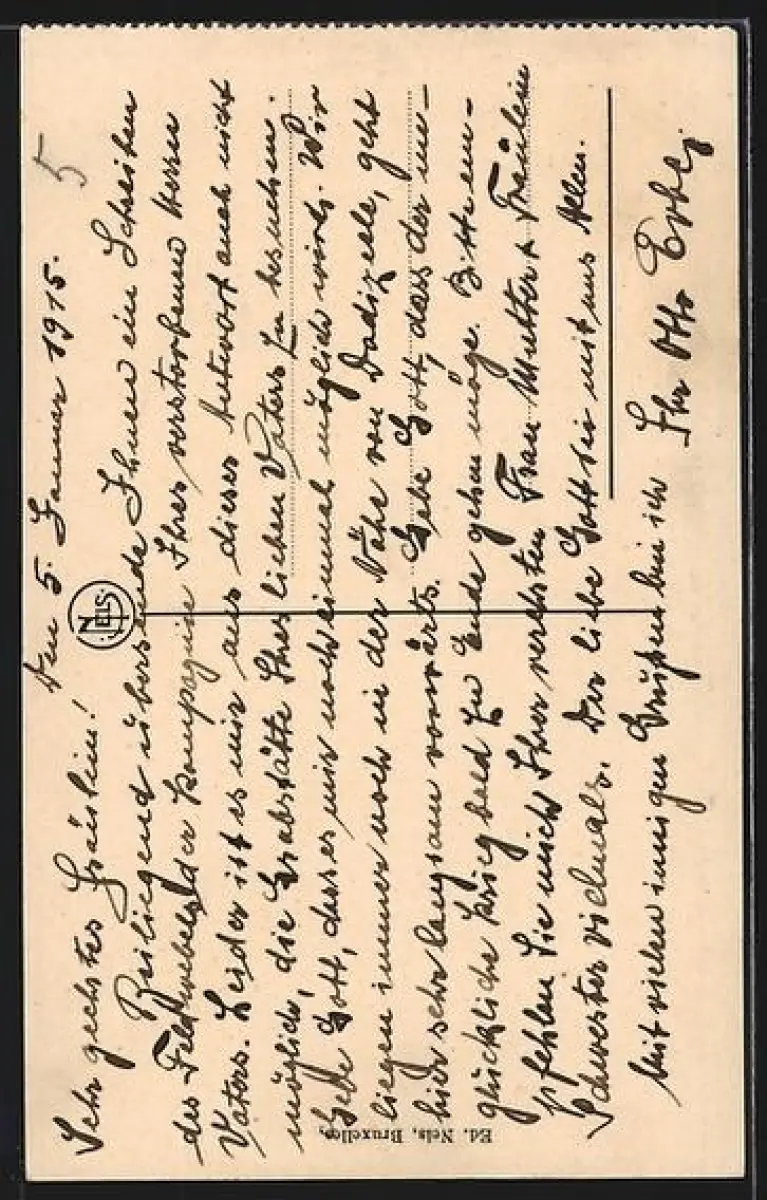 5
Den 5. Januar 1915.
Sehr geehrtes Fräulein!
Beiliegend übersende Ihnen ein Schreiben
des Feldwebels der Kompagnie Ihres verstorbenen Herrn
Vaters. Leider ist es mir aus dieser Antwort auch nicht
möglich, die Grabstätte Ihres lieben Vaters zu besuchen.
Gebe Gott, dass es mir noch einmal möglich wird. Wir
liegen immer noch in der Nähe von Dadizeele, geht
hier sehr langsam vorwärts. Gebe Gott, dass der un-
glückliche Krieg bald zu Ende gehen möge. Bitte em-
pfehlen Sie mich Ihrer verehrten Frau Mutter & Fräulein
Schwester vielmals. Der liebe Gott sei mit uns Allen.
Mit vielen innigen Grüßen bin ich Ihr Otto
NELS
Ed. Nels, Bruxelles